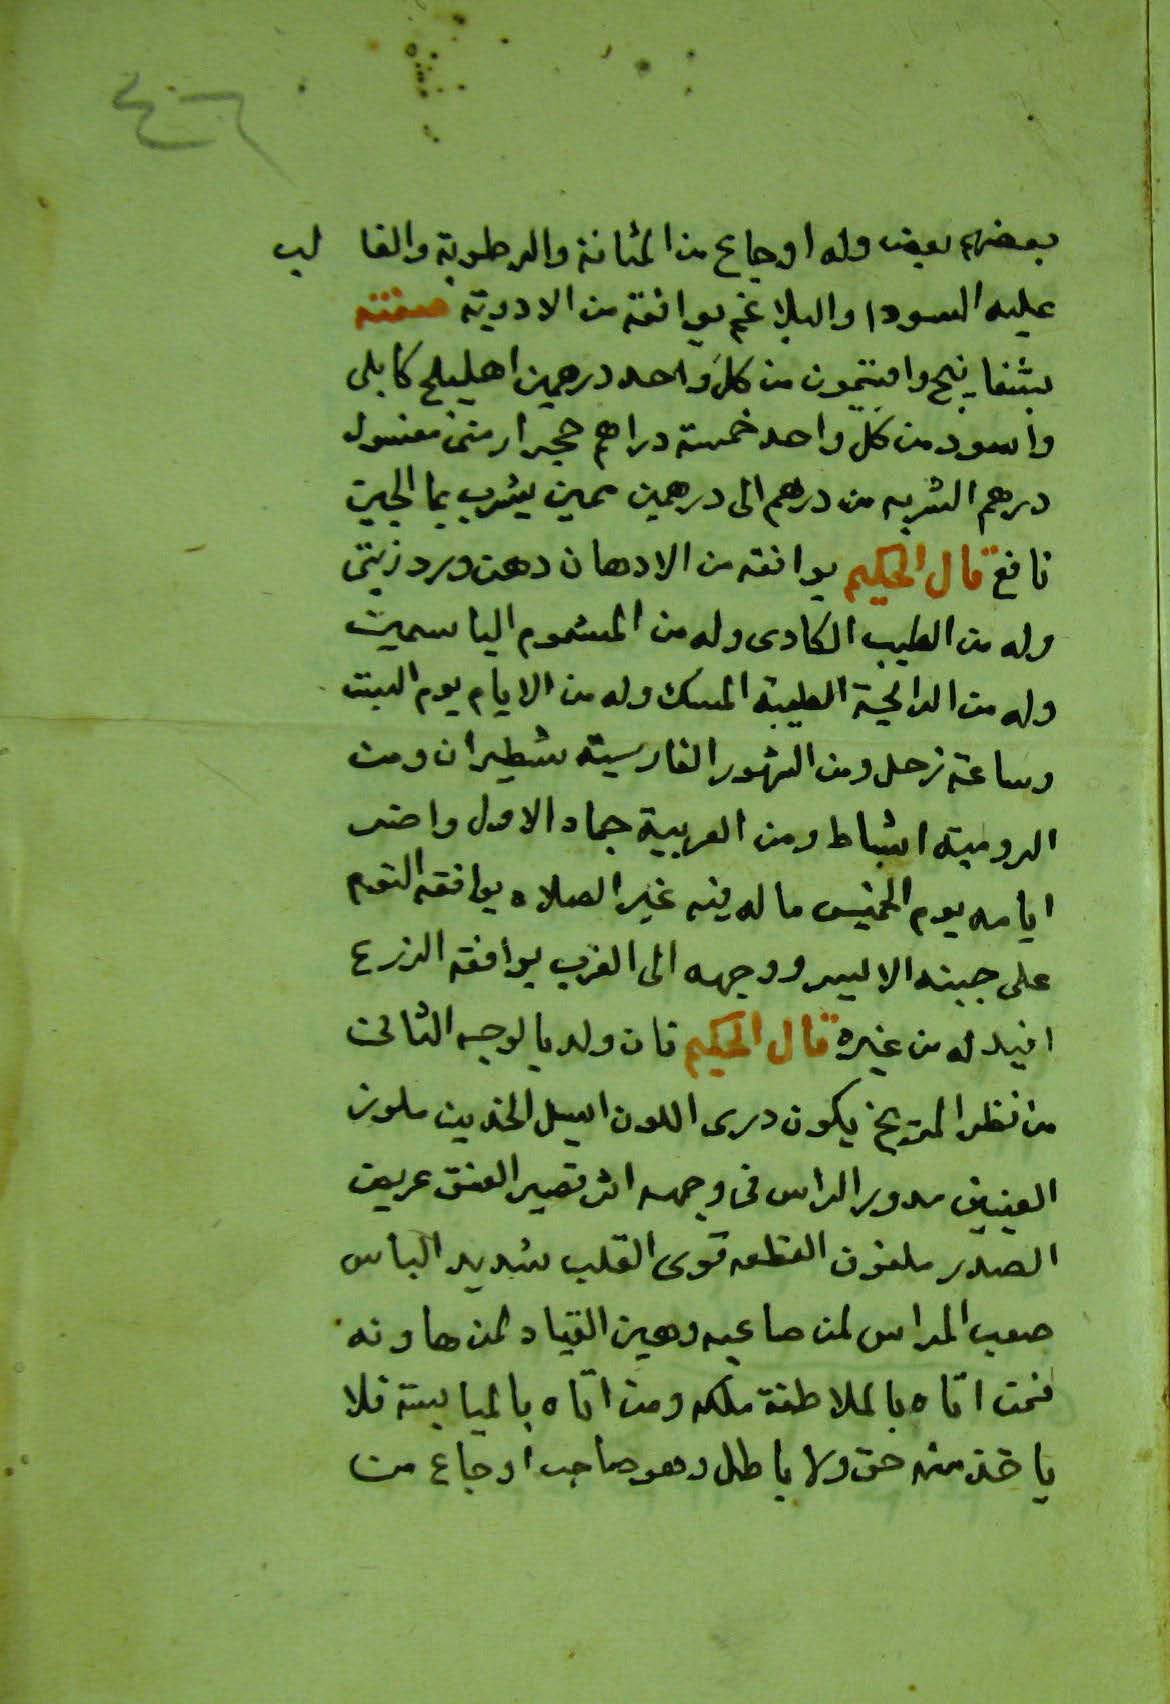 ٤٠٦
بعضهم بعض وله اوجاع من المثانة والرطوبة والغالب
عليه السودا والبلاغم يوافقة من الادوية صفته
بشفايج وافتيمون من كل واحد درهمين اهليلج كابلى
واسود من كل واحد خمسة دراهم حجر ارمنى مغسول
درهم الشربه من درهم الى درهمين يشرب بما الجبن
نافع قال الحكيم يوافقه من الادهان دهن ورد زيتى
وله من الطيب الكادى وله من المشموم الياسمين
وله من الرائحة الطيبة المسك وله من الايام يوم السبت
وساعة زحل ومن الشهور الفارسية ومن
الرومية اشباط ومن العربية جماد الاول واضر
ايامه يوم الخميس ماله فيه غير الصلاه يوافقه النوم
على جبنه الايسر ووجهه الى الغرب يوافقه الزرع
افيد له من غيره قال الحكيم فان ولد بالوجه الثالث
من نظر المريخ يكون درى اللون اسيل الخدين ملوز
العينين مدور الراس فى وجهه اثر قصير العنق عريض
الصدر ملزز القطعه قوى القلب شديد الباس
صعب المراس لمن صاعبه وهين القياد لمن هاونه
فمن اتاه بالملاطفة ملكه ومن اتاه فلا
ياخذ منه حق ولا باطل وهو صاحب اوجاع من